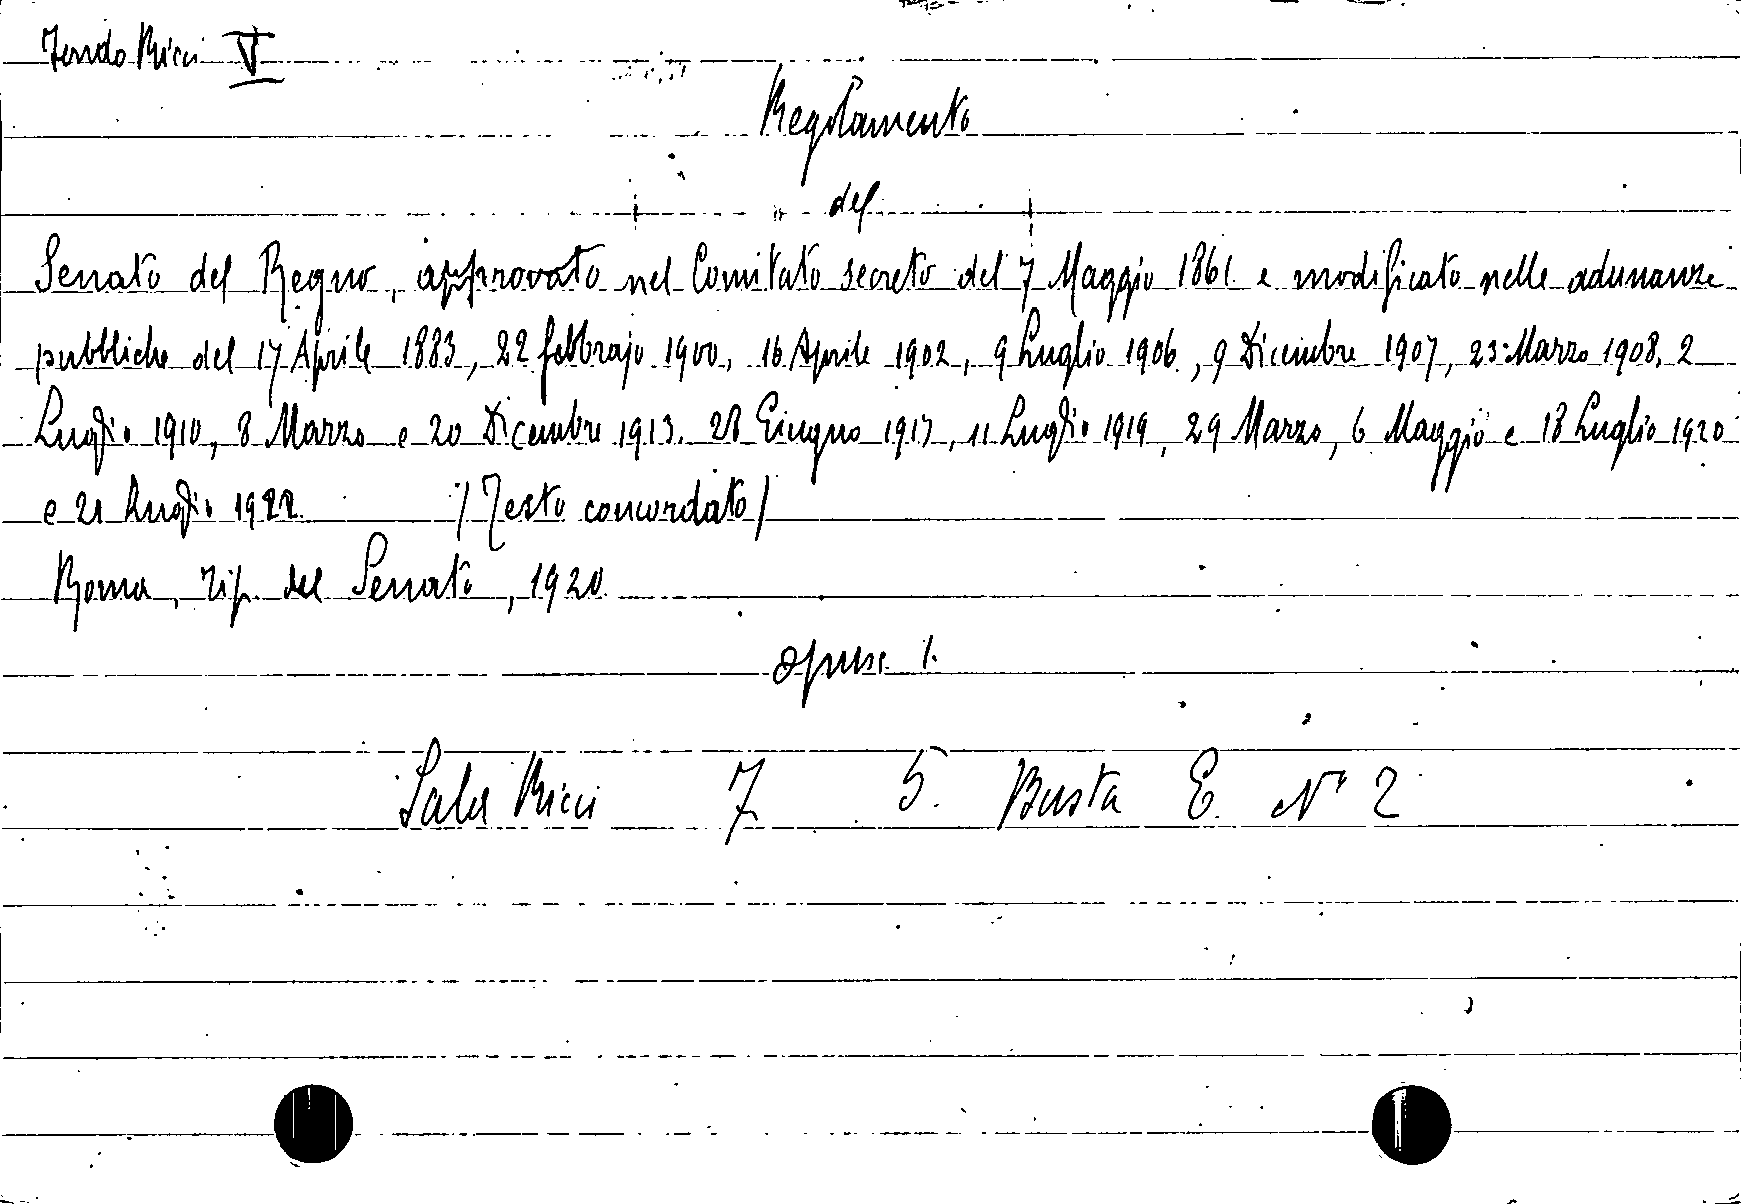 Fondo Ricci V
Regolamento
del
Senato del Regno, approvato nel Comitato secreto del 7 Maggio 1861. e modificato nelle adunanze
pubbliche del 17 Aprile 1883, 22 febbrajo 1900, 16 Aprile 1902, 9 Luglio 1906, 9 Dicembre 1907, 23 Marzo 1908, 2
Luglio 1910, 8 Marzo e 20 Dicembre 1913. 28 Giugno 1917, 11 Luglio 1919, 29 Marzo, 6 Maggio e 18 Luglio 1920
e 21 Luglio 1922. /Testo concordato/
Roma, Tip. del Senato, 1920.
opusc. 1.
Sala Ricci 7 5. Busta E. N° 2